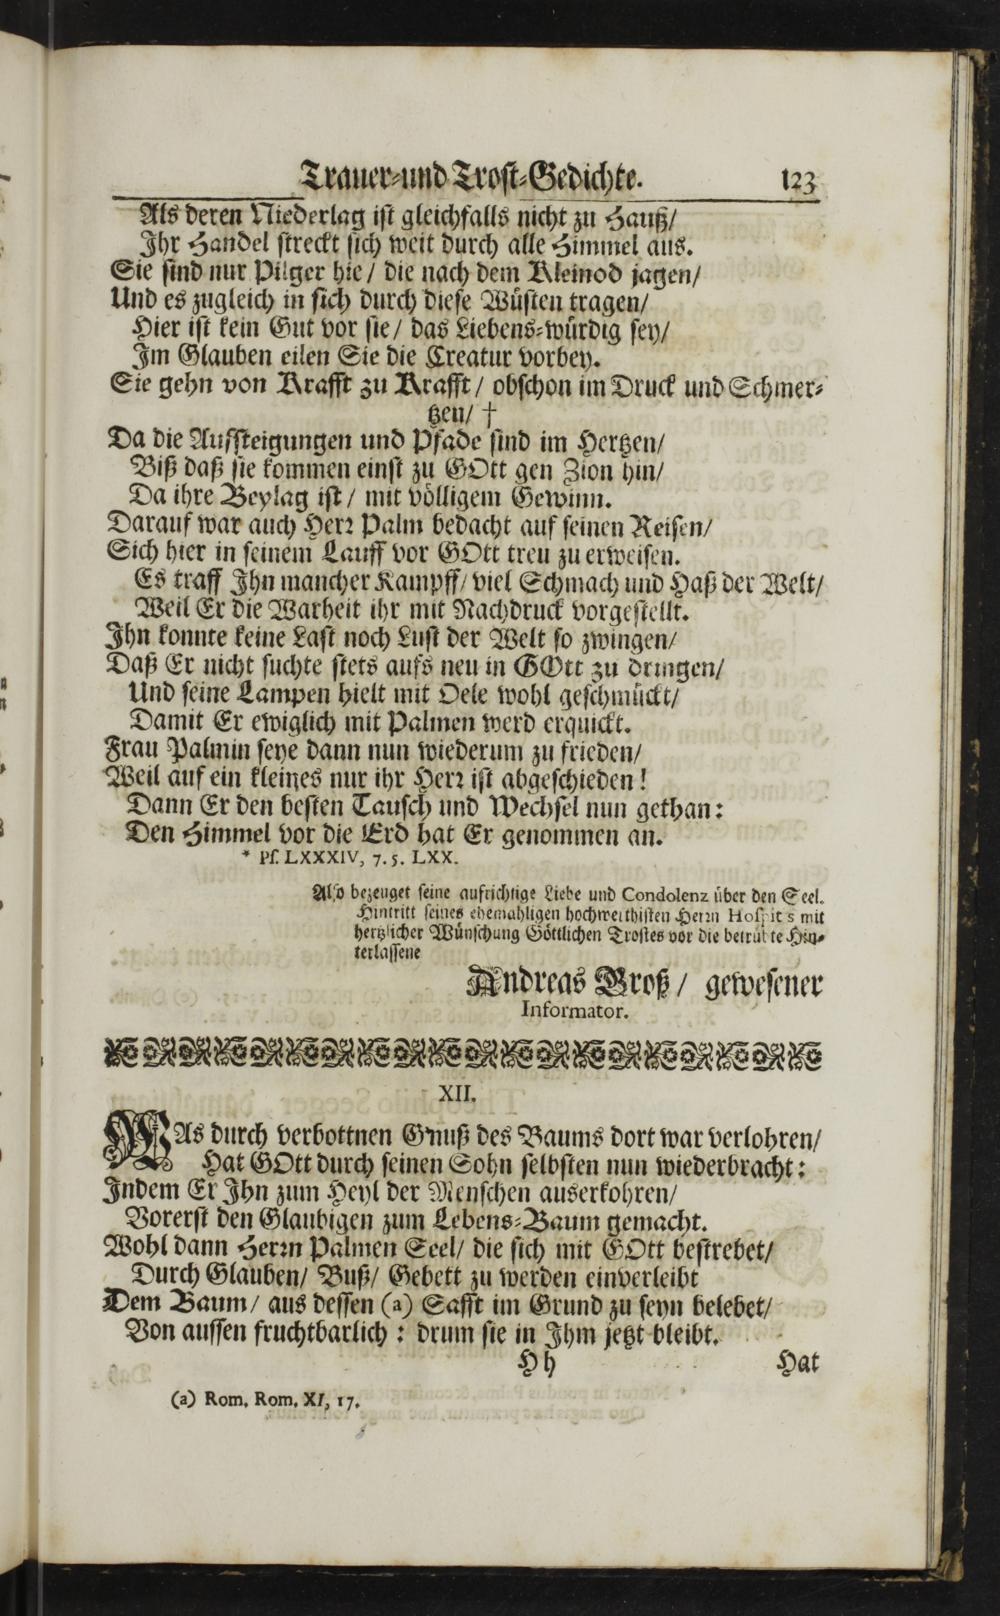 Trauer-und Trost-Gedichte. 123
Als deren Niederlag ist gleichfalls nicht zu Hauß/
Ihr Handel streckt sich weit durch alle Himmel aus.
Sie sind nur Pilger hie / die nach dem Kleinod jagen/
Und es zugleich in sich durch diese Wüsten tragen/
Hier ist kein Gut vor sie / das Liebens-würdig sey/
Im Glauben eilen Sie die Creatur vorbey.
Sie gehn von Krafft zu Krafft / obschon im Druck und Schmer-
tzen/ †
Da die Aufsteigungen und Pfade sind im Hertzen/
Biß daß sie kommen einst zu GOtt gen Zion hin/
Da ihre Beylag ist / mit völligem Gewinn.
Darauf war auch Herr Palm bedacht auf seinen Reisen/
Sich hier in seinem Lauff vor GOtt treu zu erweisen.
Es traff Ihn mancher Kampff/ viel Schmach und Haß der Welt/
Weil Er die Warheit ihr mit Nachdruck vorgestellt.
Ihn konnte keine Last noch Lust der Welt so zwingen/
Daß Er nicht suchte stets aufs neu in GOtt zu dringen/
Und seine Lampen hielt mit Oele wohl geschmückt/
Damit Er ewiglich mit Palmen werd erquickt.
Frau Palmin seye dann nun wiederum zu frieden/
Weil auf ein kleines nur ihr Herr ist abgeschieden !
Dann Er den besten Tausch und Wechsel nun gethan:
Den Himmel vor die Erd hat Er genommen an.
* Ps. LXXXIV, 7. 5. LXX.
Also bezeuget seine aufrichtige Liebe und Condolenz über den Seel.
Hintritt seines ehemahligen hochwerthisten Herrn Hospitis mit
hertzlicher Wünschung Göttlichen Trostes vor die betrübte Hin-
terlassene
Andreas Groß / gewesener
Informator.
XII.
WAs durch verbottnen Gnuß des Baums dort war verlohren/
Hat GOtt durch seinen Sohn selbsten nun wiederbracht:
Indem Er Ihn zum Heyl der Menschen auserkohren/
Vorerst den Glaubigen zum Lebens-Baum gemacht.
Wohl dann Herrn Palmen Seel/ die sich mit GOtt bestrebet/
Durch Glauben/ Buß/ Gebett zu werden einverleibt
Dem Baum/ aus dessen (a) Safft im Grund zu seyn belebet/
Von aussen fruchtbarlich : drum sie in Ihm jetzt bleibt.
Hh Hat
(a) Rom. Rom. XI, 17.